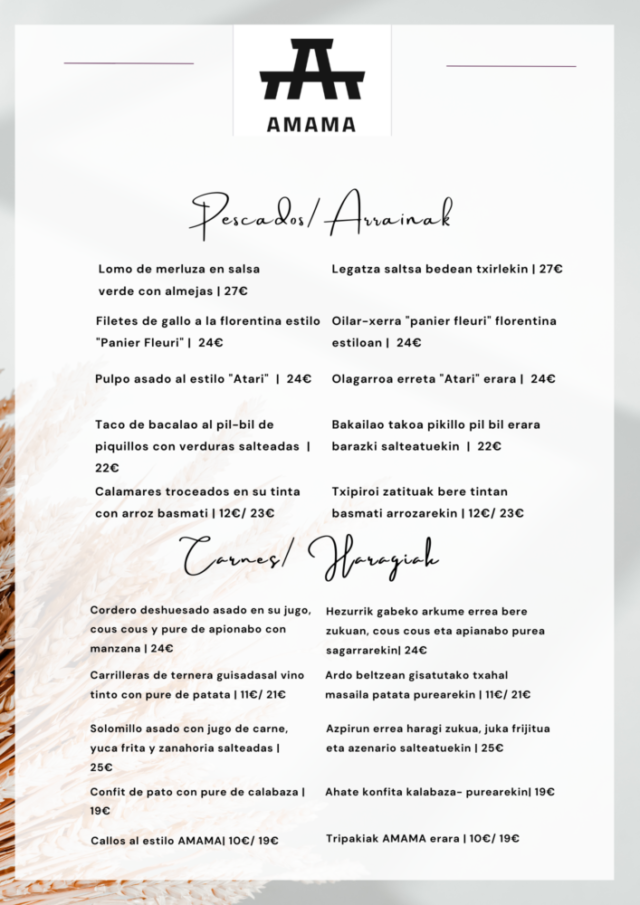 AMAMA
Pescados/ Arrainak
Lomo de merluza en salsa
verde con almejas | 27€
Legatza saltsa bedean txirlekin | 27€
Filetes de gallo a la florentina estilo
"Panier Fleuri" | 24€
Oilar-xerra "panier fleuri" florentina
estiloan | 24€
Pulpo asado al estilo "Atari" | 24€
Olagarroa erreta "Atari" erara | 24€
Taco de bacalao al pil-bil de
piquillos con verduras salteadas |
22€
Bakailao takoa pikillo pil bil erara
barazki salteatuekin | 22€
Calamares troceados en su tinta
con arroz basmati | 12€/ 23€
Txipiroi zatituak bere tintan
basmati arrozarekin | 12€/ 23€
Carnes/ Haragiak
Cordero deshuesado asado en su jugo,
cous cous y pure de apionabo con
manzana | 24€
Hezurrik gabeko arkume errea bere
zukuan, cous cous eta apianabo purea
sagarrarekin| 24€
Carrilleras de ternera guisadasal vino
tinto con pure de patata | 11€/ 21€
Ardo beltzean gisatutako txahal
masaila patata purearekin | 11€/ 21€
Solomillo asado con jugo de carne,
yuca frita y zanahoria salteadas |
25€
Azpirun errea haragi zukua, juka frijitua
eta azenario salteatuekin | 25€
Confit de pato con pure de calabaza |
19€
Ahate konfita kalabaza- purearekin| 19€
Callos al estilo AMAMA| 10€/ 19€
Tripakiak AMAMA erara | 10€/ 19€